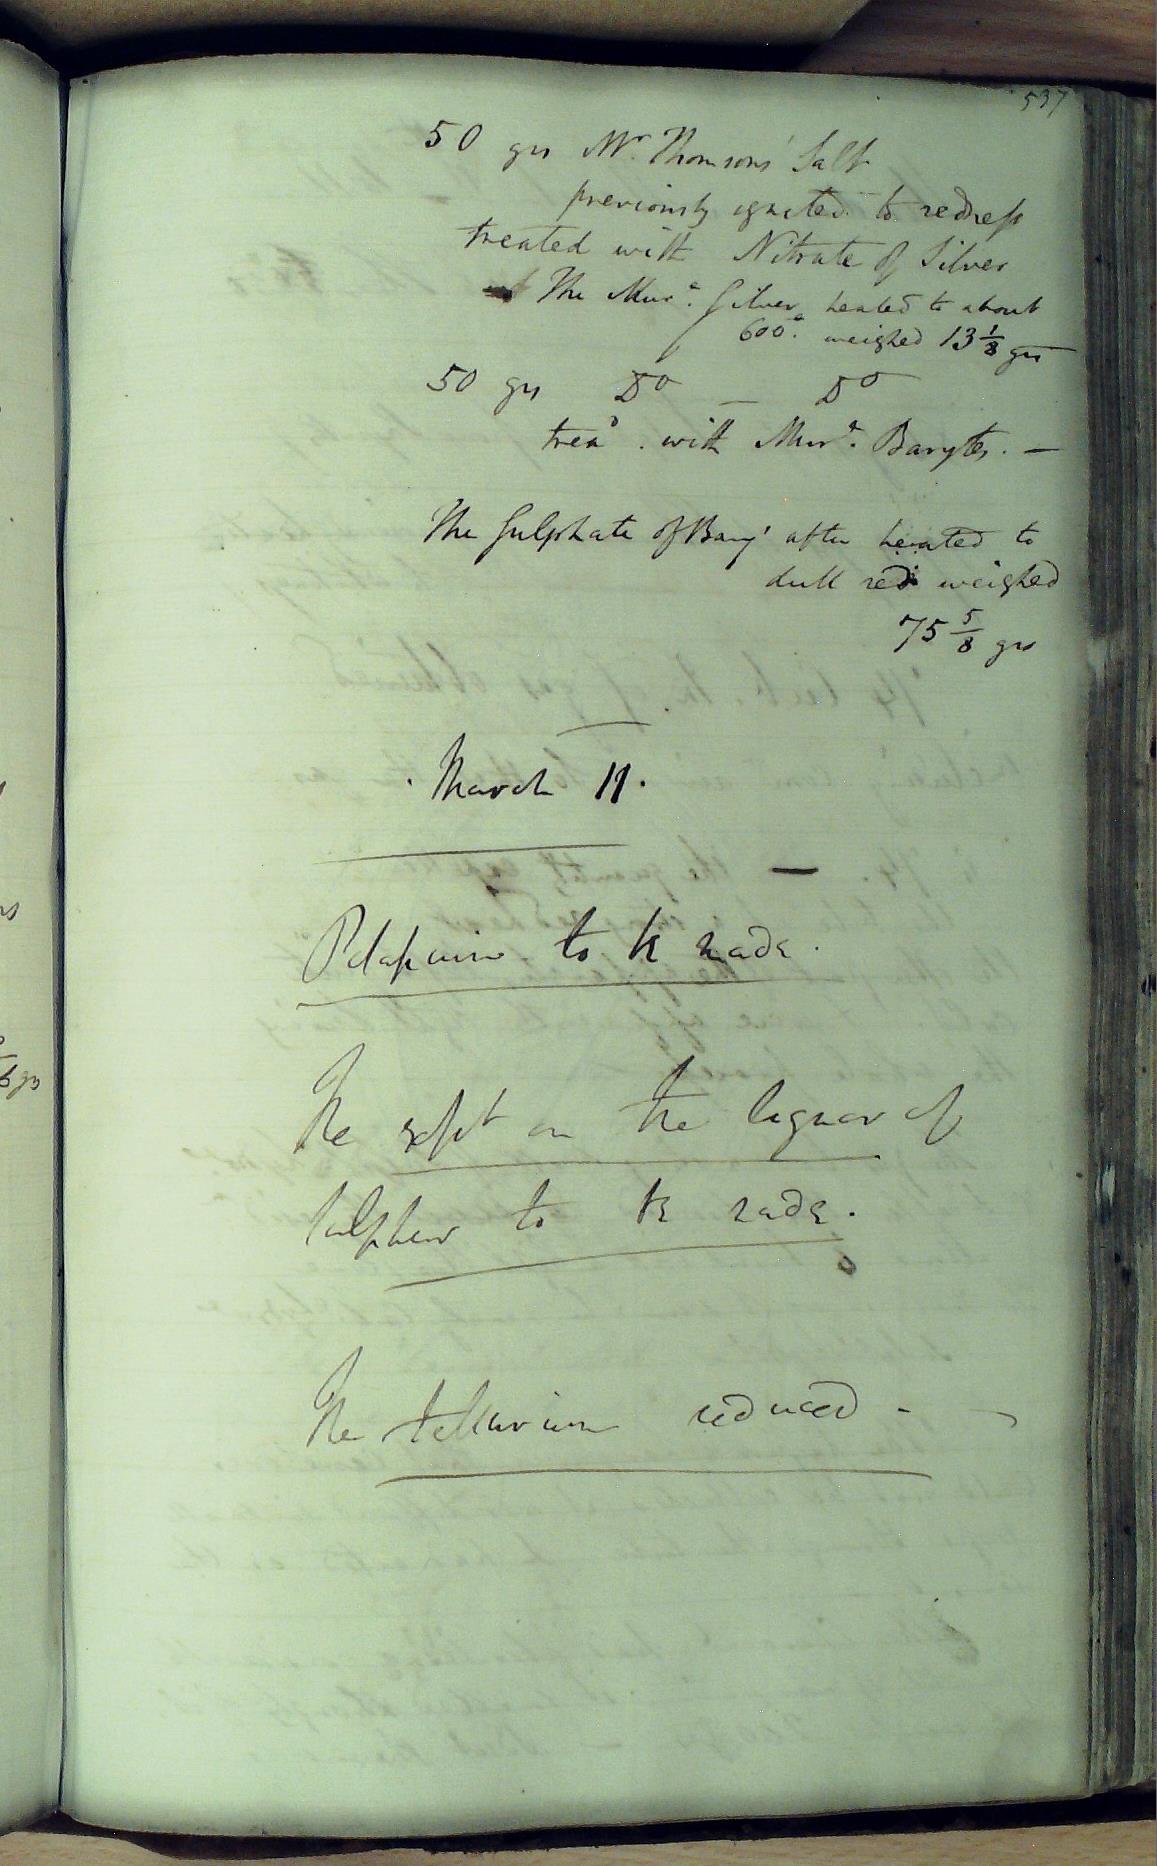 537
50 grs Mr. Thomsons' Salt
previously ignited to redness
treated with Nitrate of Silver
The Mure. Silver heated to about
600°. weighed 13 1/8 grs
50 grs Do — Do
tread. with Murt. Barytes. —
The Sulphate of Bary' after heated to
dull red weighed
75 5/8 grs
March 11.
—
Potassium to be made.
The expt on the liquor of
Sulphur to be made.
The tellurium reduced -